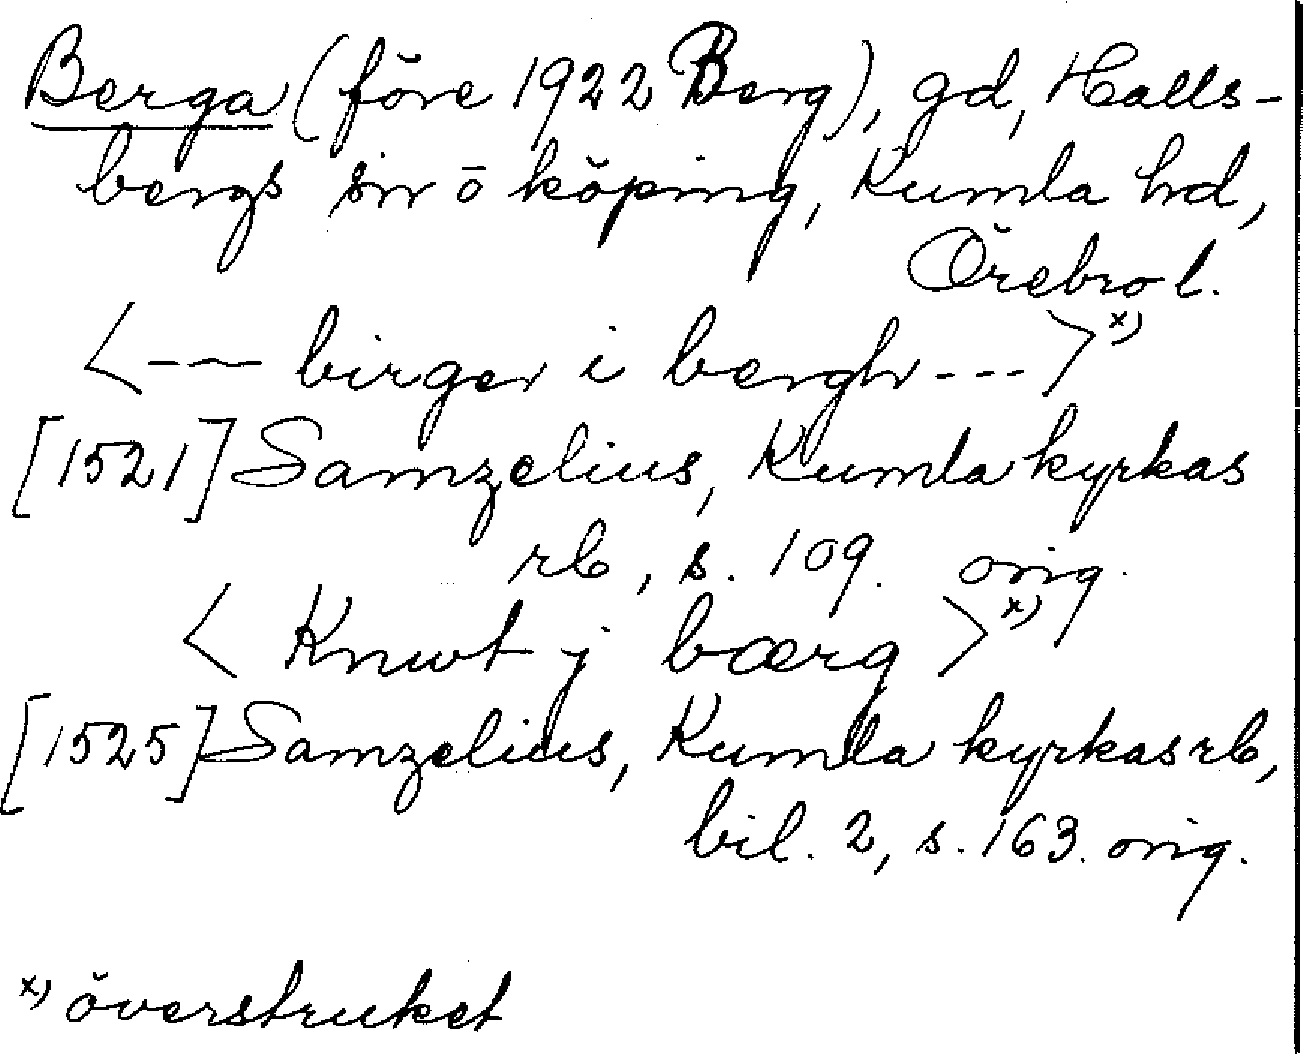 Berga (före 1922 Berg), gd, Halls-
bergs sn o köping, Kumla hd,
Örebro l.
<--- birger i bergh --->x)
[1521] Samzelius, Kumla kyrkas
rb, s. 109. orig.
< Knwt j bærg >x)
[1525] Samzelius, Kumla kyrkas rb,
bil. 2, s. 163. orig.
x) överstruket